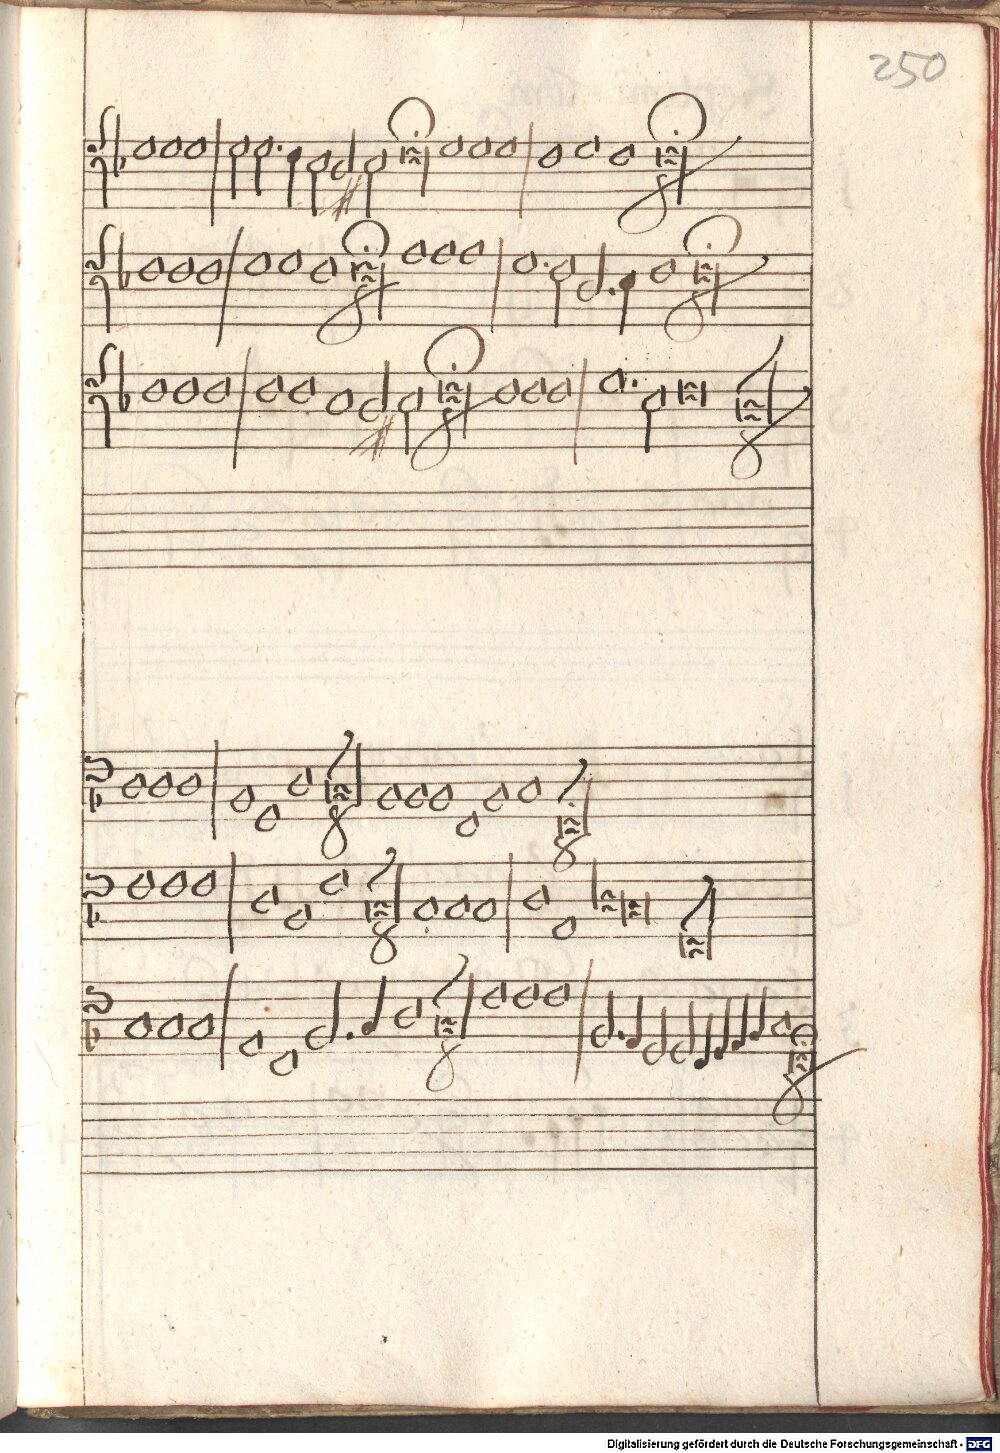 250
Digitalisierung gefördert durch die Deutsche Forschungsgemeinschaft - DFG